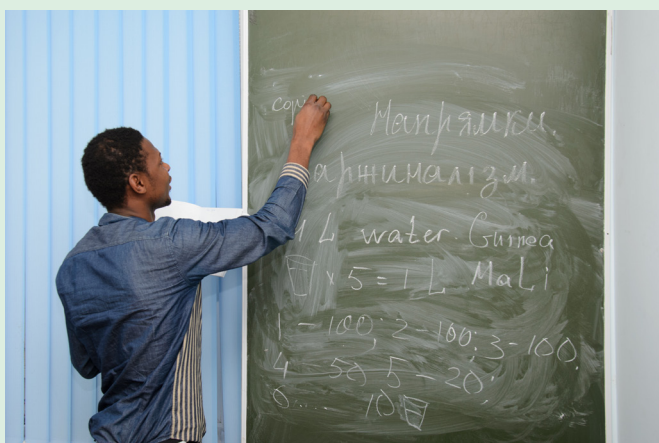 сорі
Напрямки.
аржиналізм.
1 L water Guinea
x 5 = 1 L MaLi
1 – 100; 2 – 100; 3 – 100,
4 – 50 5 – 20;
0.... 10